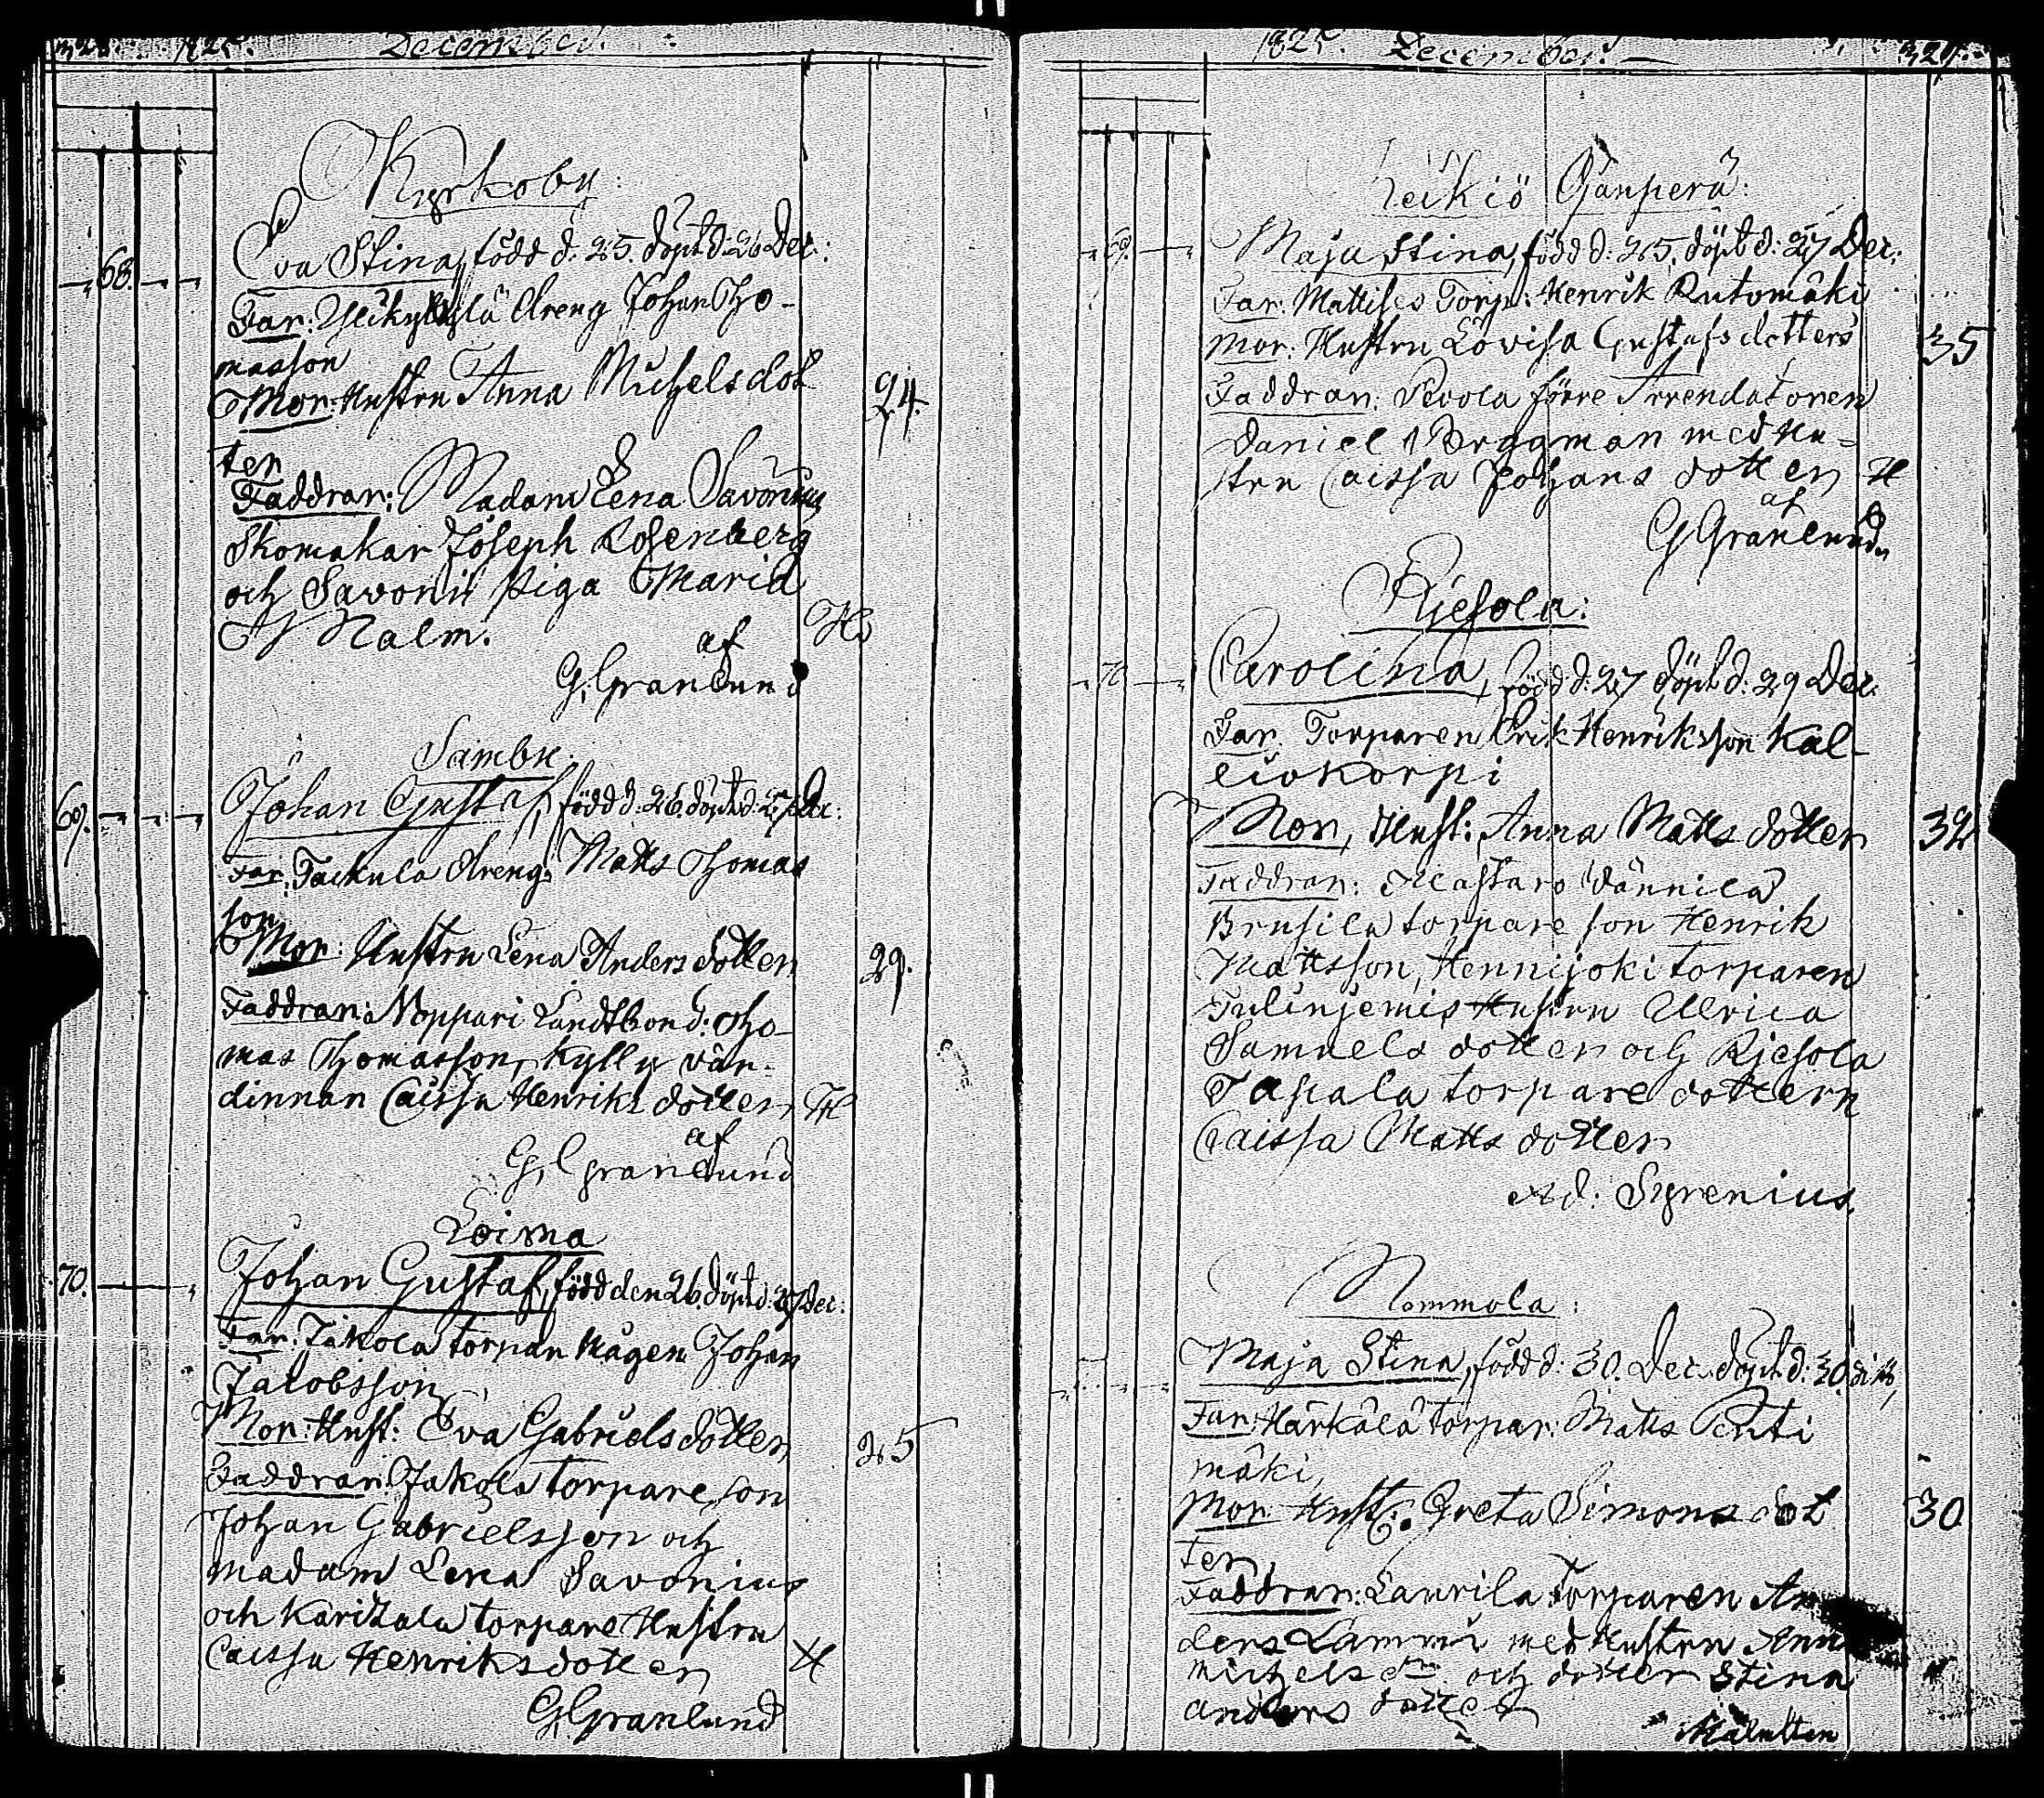 328. 1825. December.
Kyrkoby:
68.
Eva Stina, född d: 25. döpt d: 26 Dec:
Far: Dreng Johan Tho-
masson
Mor: Hustru Anna Michelsdot
24.
ter
Faddran: Madam Lena Savonius
Skomakar Joseph Rosenberg
och Savonii Piga Maria
Malm.
af
G. Granlund
Sambu:
69.
Johan Gustaf, född d: 26. döpt d: 27 Dec:
Far: Tackula Dreng Matts Thomas
son
Mor: Hustru Lena Andersdotter
29.
Faddran: Noppari Landtbond: Tho-
mas Thomasson, Kylly vär-
dinnan Caissa Henriksdotter
af
G. Granlund
Loima
70.
Johan Gustaf, född den 26. döpt d: 27 Dec:
Far: Jakola torpar Mågen Johan
Jacobsson
Mor: Hust: Eva Gabrielsdotter
25
Faddran: Jakola torpare son
Johan Gabrielsson och
madam Lena Savonius
och Karitala torpare Hustru
Caissa Henriksdotter
G. Granlund
1825. December. 329.
Gånperä:
69.
Maja Stina, född d: 25. döpt d: 27 Dec:
Far: Torp: Henrik Rutomäki
Mor: Hustru Lovisa Gustafsdotter
35
Faddran: förre Arrendatoren
Daniel Bergman med Hu=
stru Caissa Johansdotter
af
G Granlund
Rjesola:
70
Carolina, född d: 27 döpt d: 29 Dec:
Far: Torparen Erik Henriksson Kal-
liokorpi
Mor, Hust: Anna Mattsdotter
32
Faddran: Wännilä
Brusila torpare son Henrik
Mattsson, Hennijoki torparen
Hustru Ulrica
Samuels dotter och Rjesola
Tapala torpare dottern
Caissa Matts dotter
Ad: Syrenius
Nommola:
Maja Stina, född d: 30. Dec. döpt d: 30.
Far: Härkälä torpar: Matts
mäki,
Mor Hust: Greta Simonsdot
30
ter,
Faddran: Laurila Torparen An
ders Lammi med Hustru Ann
Michels och dotter Stina
Anders dotter